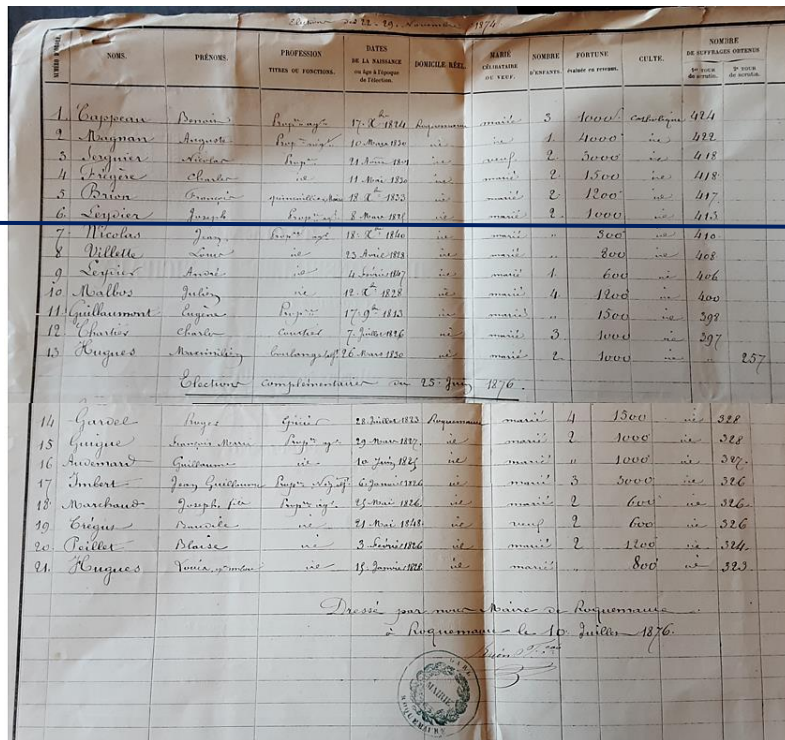 Elections des 22-29 Novembre 1874
NUMÉRO D'ORDRE NOMS. PRÉNOMS. PROFESSION TITRES OU FONCTIONS. DATES DE LA NAISSANCE ou âge à l'époque de l'élection. DOMICILE RÉEL. MARIÉ CÉLIBATAIRE OU VEUF. NOMBRE D'ENFANTS. FORTUNE évaluée en revenu. CULTE. NOMBRE DE SUFFRAGES OBTENUS 1er TOUR de scrutin. 2e TOUR de scrutin.
1 Cappeau Benoit Propre agr 17 Xbre 1824 Roquemaure marié 3 1000 catholique 424
2 Magnan Auguste Propre agr 10 Mars 1830 id id 1 4000 id 422
3 Nicolas Propre 21 id veuf 2 3000 id 418
4 Frégère Charles id 11 Mai 1830 id marié 2 1500 id 418
5 Brion François 18 Xbre 1833 id marié 2 1200 id 417
6 Leydier Joseph Propre agr 8 Mars 1835 id marié 2 1000 id 413
7 Nicolas Jean Propre agr 18 Xbre 1840 id marié " 300 id 410
8 Villette Louis id 23 Avril 1823 id marié " 800 id 408
9 André id 4 Février 1847 id marié 1 600 id 406
10 Malbos Julien id 12 Xbre 1828 id marié 4 1200 id 400
11 Guillaumont Eugène Propre 17 9bre 1813 id marié " 1500 id 398
12 Chartier Charles courtier 7 Juillet 1826 id marié 3 1000 id 397
13 Hugues Maximilien boulanger 26 Mars 1830 id marié 2 1000 id " 257
Elections complémentaires du 25 Juin 1876.
14 Gardel épicier 28 Juillet 1823 Roquemaure marié 4 1500 id 328
15 Guigue François Propre agr 29 Mars 1827 id marié 2 1000 id 328
16 Audemard Guillaume id 10 Juin 1825 id marié " 1000 id 327
17 Imbert Jean Guillaume Propre 6 Janvier 1826 id marié 3 3000 id 326
18 Marchaud Joseph fils Propre agr 25 Mai 1826 id marié 2 600 id 326
19 Trégus Baudile id 21 Mai 1848 id veuf 2 600 id 326
20 Peillet Blaise id 3 Février 1826 id marié 2 1200 id 324
21 Hugues Louis id 15 Janvier 1828 id marié " 800 id 323
Dressé par nous Maire de Roquemaure
à Roquemaure le 10 Juillet 1876.
GARD
MAIRIE
ROQUEMAURE